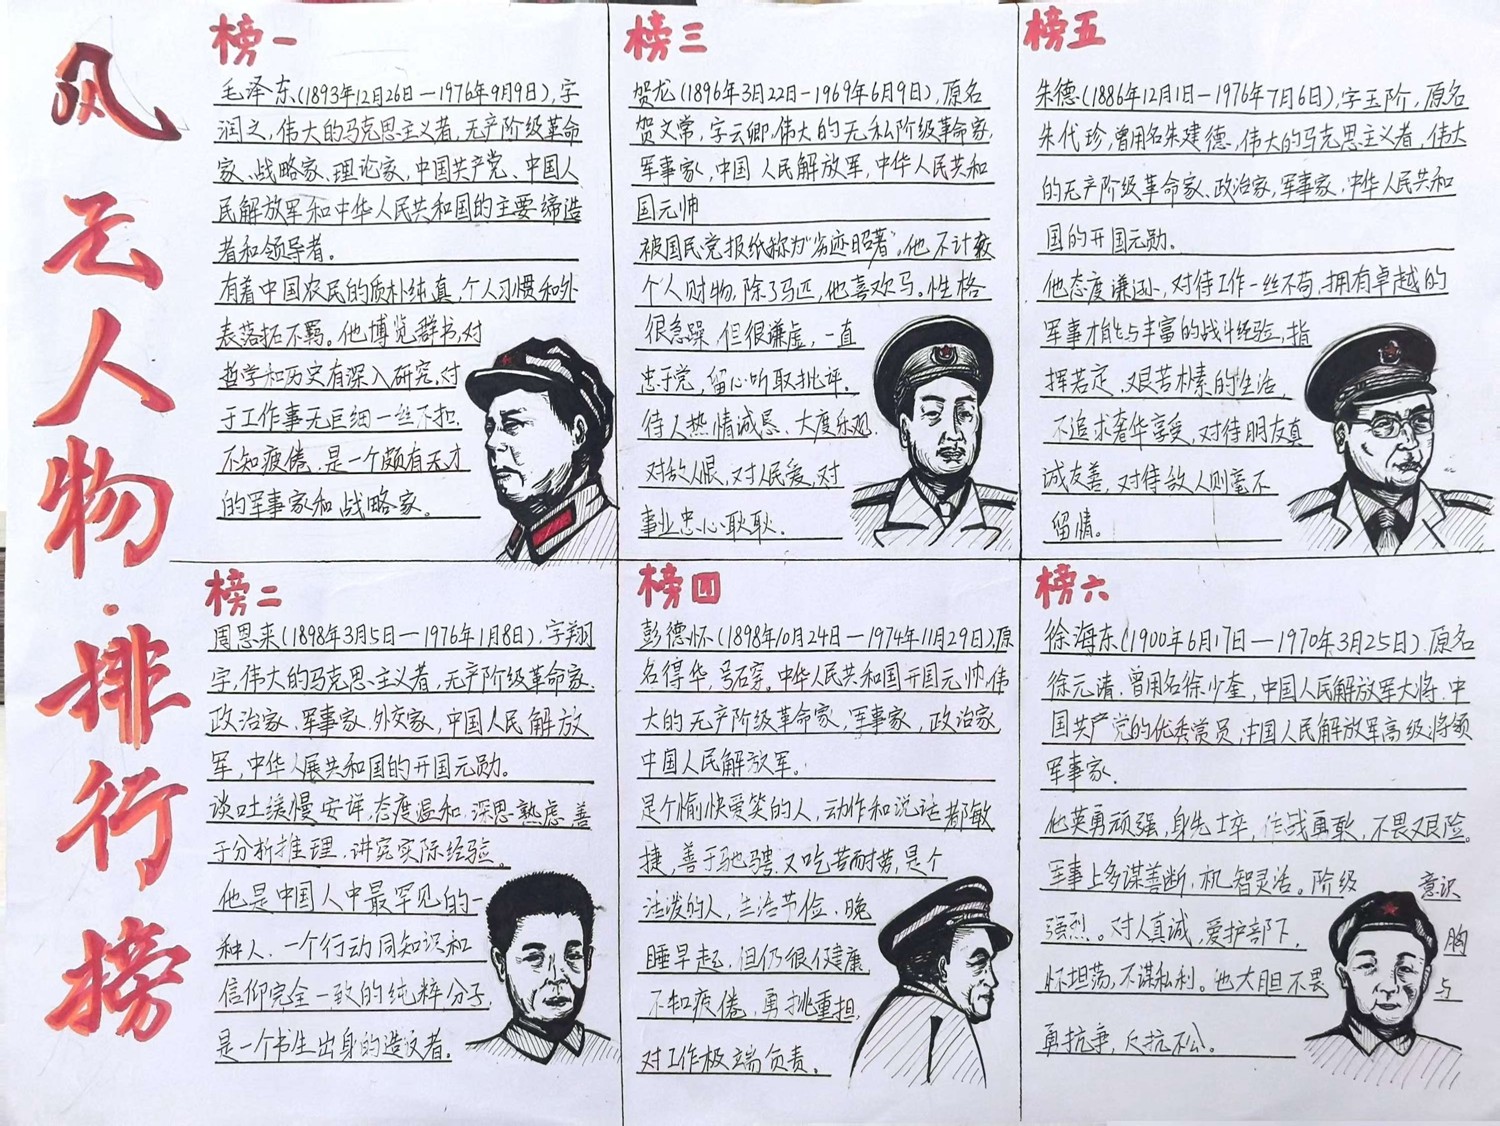 风云人物·排行榜
榜一
毛泽东(1893年12月26日—1976年9月9日),字
润之,伟大的马克思主义者,无产阶级革命
家、战略家、理论家,中国共产党、中国人
民解放军和中华人民共和国的主要缔造
者和领导者。
有着中国农民的质朴纯真,个人习惯和外
表落拓不羁。他博览群书,对
哲学和历史有深入研究,对
于工作事无巨细一丝不扣,
不知疲倦,是一个颇有天才
的军事家和战略家。
榜二
周恩来(1898年3月5日—1976年1月8日),字翔
宇,伟大的马克思主义者,无产阶级革命家、
政治家、军事家、外交家,中国人民解放
军,中华人民共和国的开国元勋。
谈吐缓慢安详,态度温和,深思熟虑,善
于分析推理,讲究实际经验。
他是中国人中最罕见的一
种人,一个行动同知识和
信仰完全一致的纯粹分子,
是一个书生出身的造反者。
榜三
贺龙(1896年3月22日—1969年6月9日),原名
贺文常,字云卿,伟大的无私阶级革命家,
军事家,中国人民解放军,中华人民共和
国元帅
被国民党报纸称为"劣迹昭著",他不计较
个人财物,除了马匹,他喜欢马。性格
很急躁,但很谦虚,一直
忠于党,留心听取批评。
待人热情诚恳、大度乐观,
对敌人恨,对人民爱,对
事业忠心耿耿.
榜四
彭德怀(1898年10月24日—1974年11月29日),原
名得华,号石穿。中华人民共和国开国元帅,伟
大的无产阶级革命家,军事家,政治家,
中国人民解放军。
是个愉快爱笑的人,动作和说话都敏
捷,善于驰骋,又吃苦耐劳,是个
活泼的人,生活节俭,晚
睡早起,但仍很健康,
不知疲倦,勇挑重担,
对工作极端负责。
榜五
朱德(1886年12月1日—1976年7月6日),字玉阶,原名
朱代珍,曾用名朱建德,伟大的马克思主义者,伟大
的无产阶级革命家、政治家,军事家,中华人民共和
国的开国元勋.
他态度谦逊,对待工作一丝不苟,拥有卓越的
军事才能与丰富的战斗经验,指
挥若定、艰苦朴素的生活,
不追求奢华享受,对待朋友真
诚友善,对待敌人则毫不
留情。
榜六
徐海东(1900年6月17日—1970年3月25日),原名
徐元清,曾用名徐少奎,中国人民解放军大将,中
国共产党的优秀党员,中国人民解放军高级将领
军事家.
他英勇顽强,身先士卒,作战勇敢,不畏艰险。
军事上多谋善断,机智灵活。阶级 意识
强烈。对人真诚,爱护部下, 胸
怀坦荡,不谋私利。他大胆不畏 与
勇抗争,